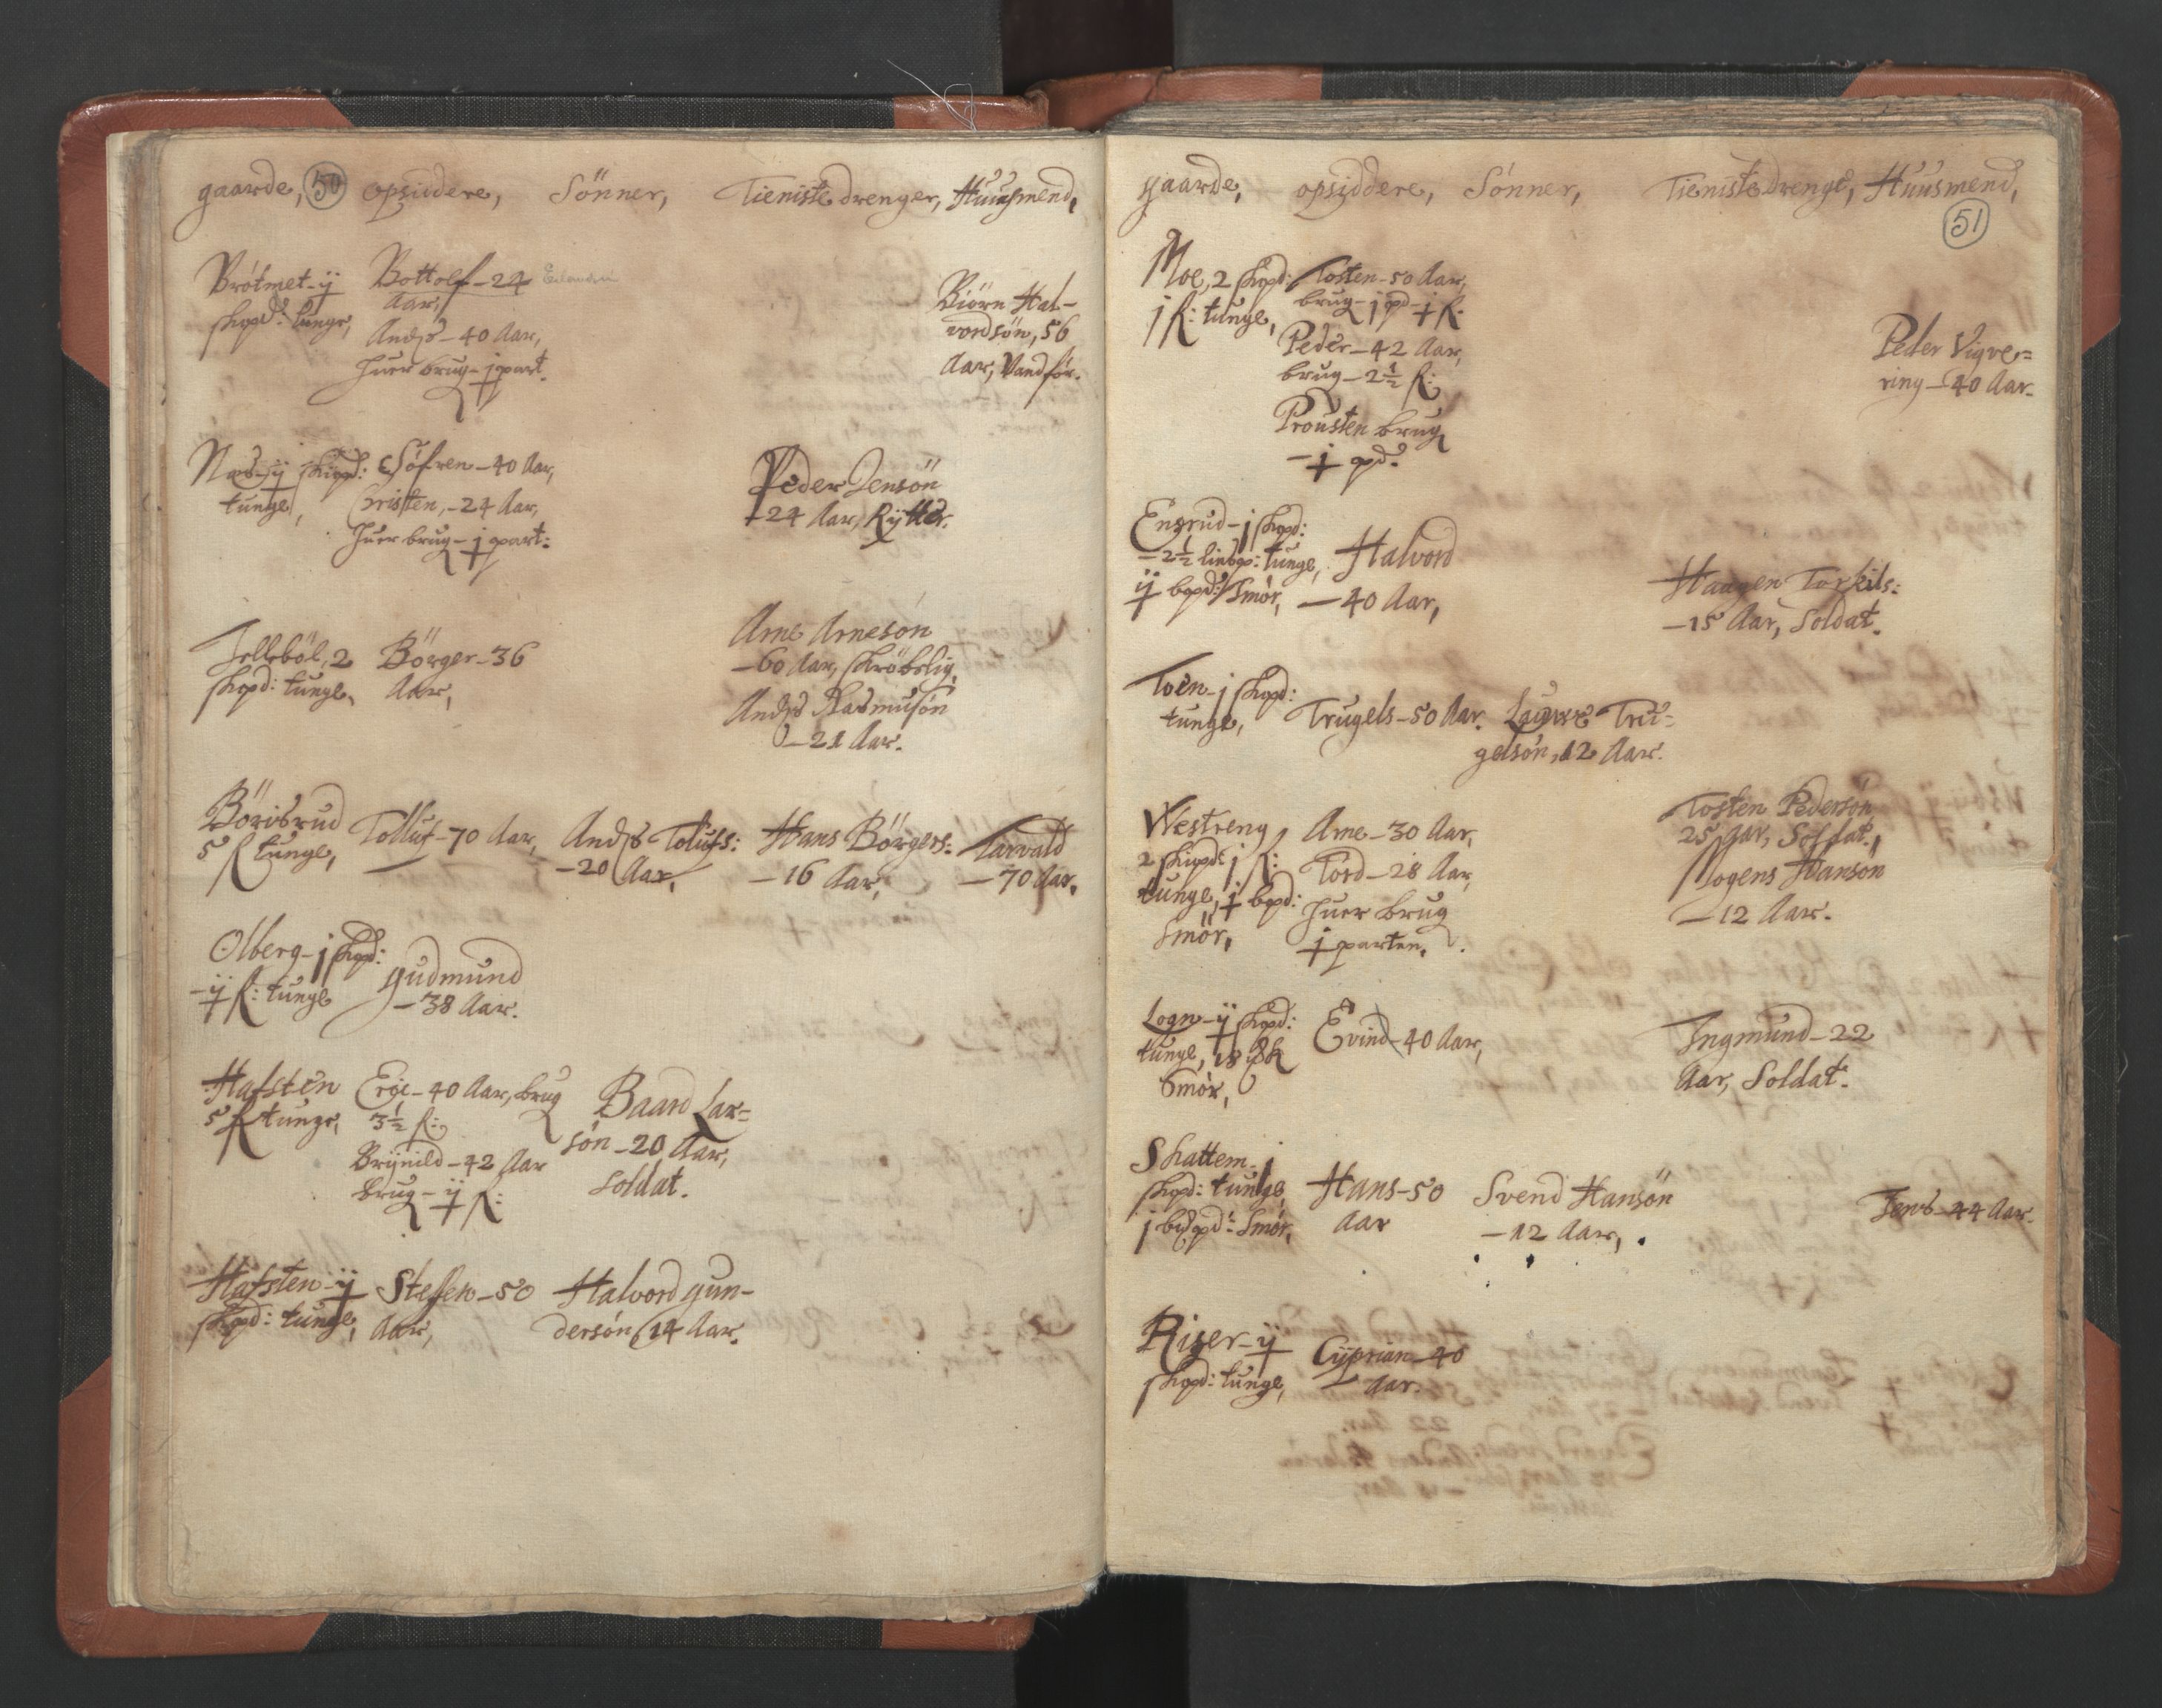 gaarde, 50 opsiddere, Sönner, Tieniste drenger, Huusmend,
Brötmet - ij
skopd: tunge,
Bottolf - 24
Aar,
Anders - 40 Aar,
huer brug - j part.
Biörn Hal-
vordsön, 56
Aar, Vandför.
Nes - ij skippd:
tunge,
Söfren - 40 Aar,
Christen, - 24 Aar,
huer brug - j part:
Peder Jensön
- 24 Aar, Rytter.
Jelleböl, 2
skopd: tunge,
Börger - 36
Aar,
Arne Arnesön
- 60 Aar, skröbelig,
Anders Rasmusön
- 21 Aar.
Börisrud
5 f: tunge,
Tolluf - 70 Aar,
Anders Tolufs:
- 20 Aar,
Hans Börgers:
- 16 Aar,
Tarvald
- 70 Aar.
Olberg - j skopd:
- ij f: tunge
Gudmund
- 38 Aar.
Hafsten
5 f: tunge,
Erje - 40 Aar, brug
3½ f:
Brynild - 42 Aar
brug - ij f:
Baard Lar=
sön - 20 Aar,
soldat.
Hafsten - ij
skopd: tunge,
Steffen - 50
Aar,
Halvord Gun-
dersön, 14 Aar.
gaarde, opsiddere, Sönner, Tieniste drenge, Huusmend,
51
Moe, 2 skopd:
j f: tunge,
Tosten - 50 Aar,
brug - j pd - j f:
Peder - 42 Aar,
brug - 2½ f:
Prousten brug
- j pd.
Peder Vigve=
ring - 40 Aar.
Engrud - j skopd:
- 2½ lisbp: tunge,
ij bpd: Smör,
Halvord
- 40 Aar,
Haagen Torkils:
- 15 Aar, Soldat.
Toen - j skopd:
tunge,
Trugels - 50 Aar.
Laurx Tru=
gelsön, 12 Aar.
Westreng,
2 skopd: j f:
tunge, j bpd:
Smör,
Arne - 30 Aar,
Tord - 28 Aar,
huer brug
j parten.
Tosten Pedersön
25 Aar, Soldat.
Mogens Hansön
- 12 Aar.
Logn - ij skopd:
tunge, 18
Smör,
Evind - 40 Aar,
Ingmund - 22
Aar, Soldat.
Skattem - j
skopd: tunge,
j bispd: Smör,
Hans - 50
Aar
Svend Hansön
- 12 Aar,
Jens - 44 Aar.
Riser - ij
skopd: tunge,
Cyprian - 40
Aar.